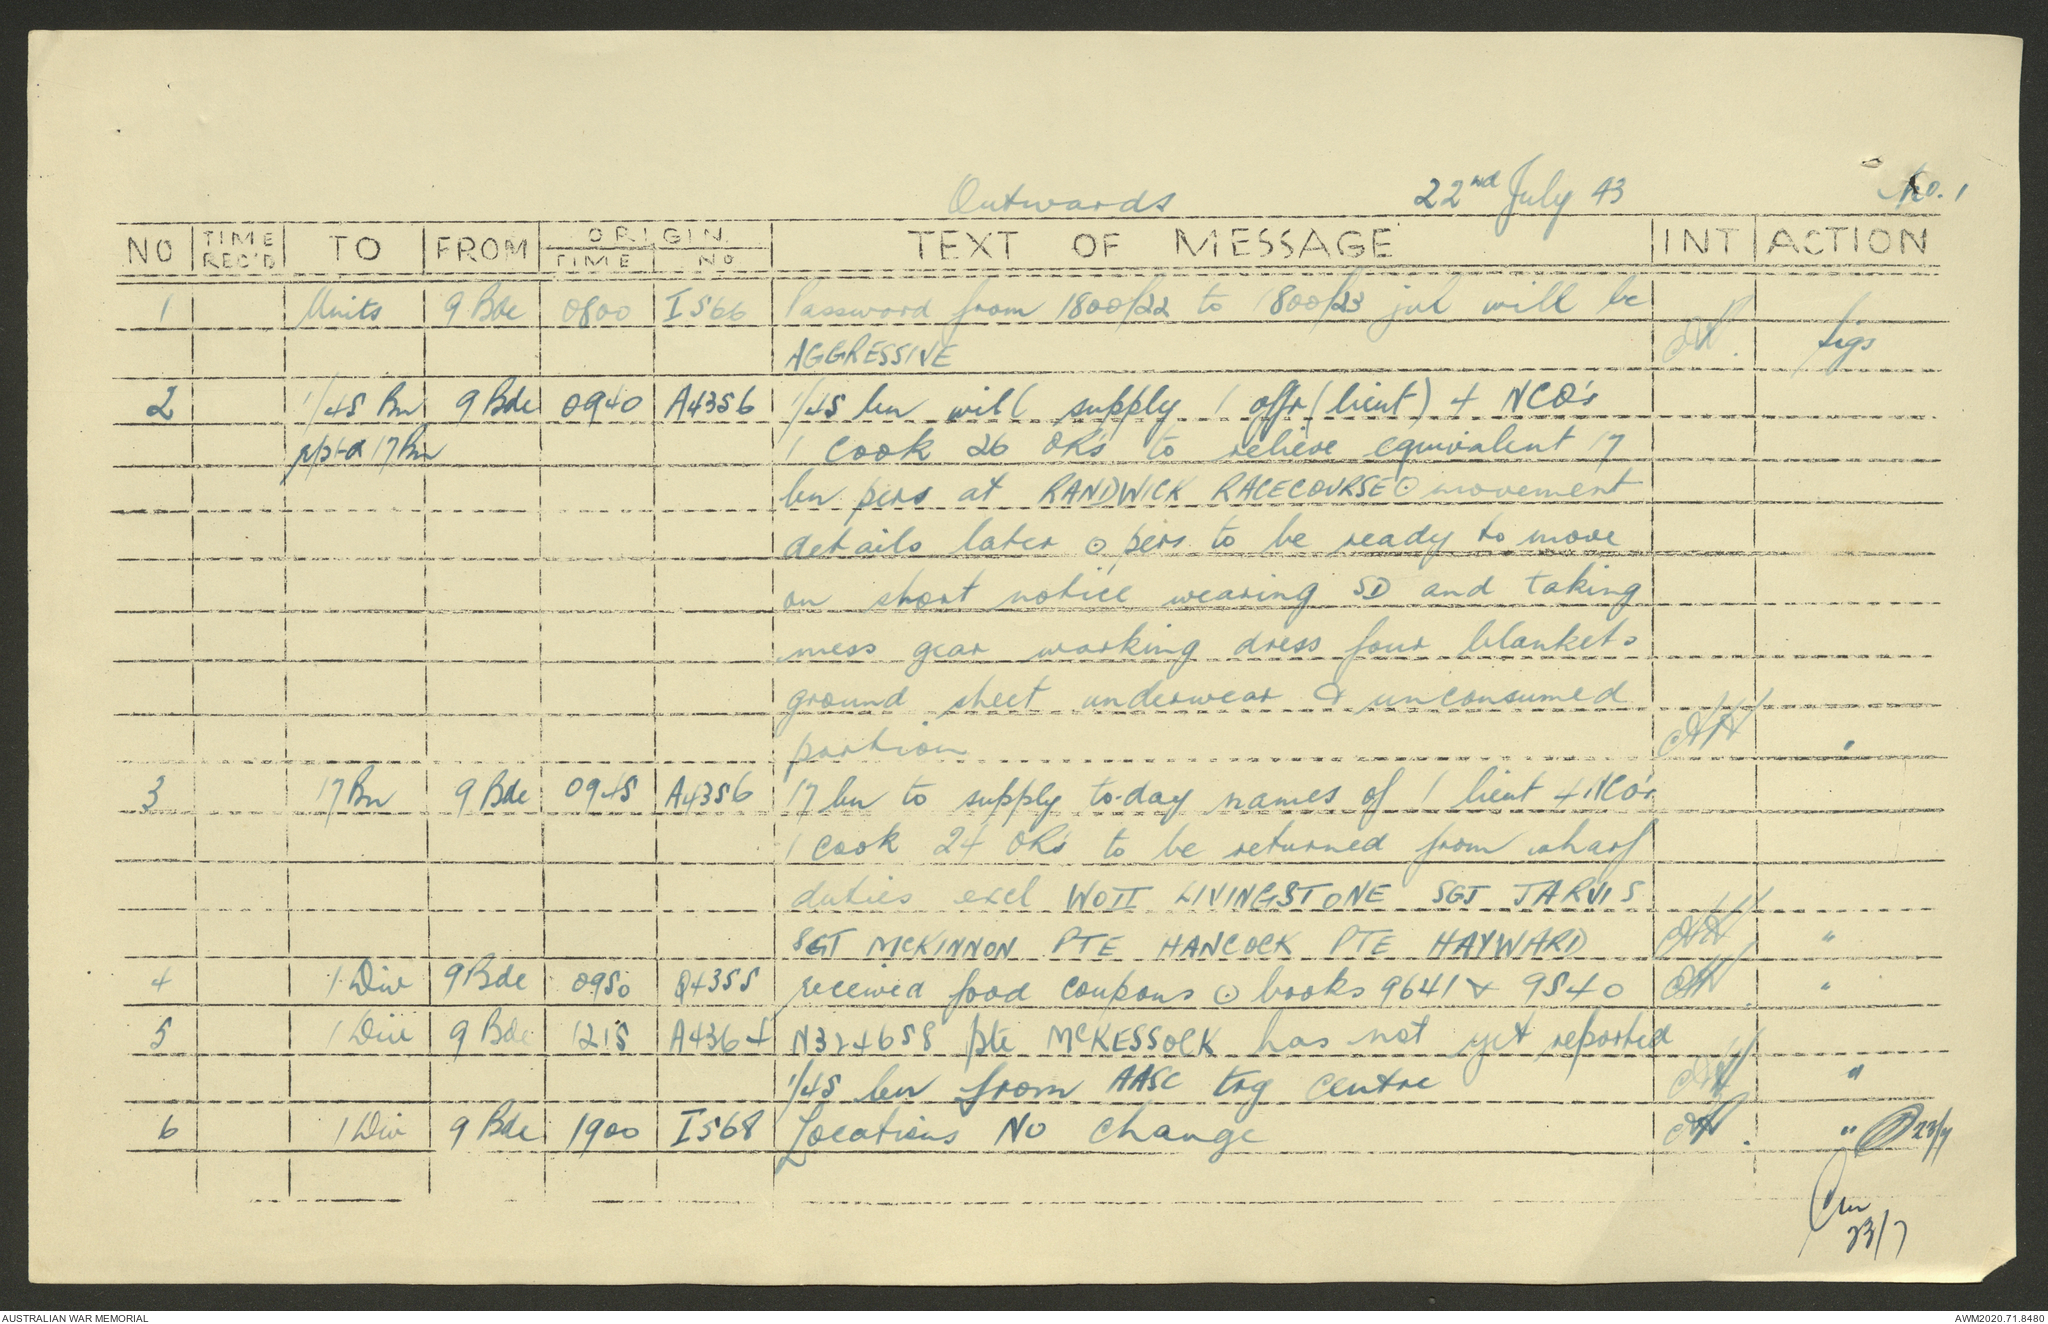 Outwards 22nd July 43 No. 1
NO TIME REC'D TO FROM ORIGIN TIME NO TEXT OF MESSAGE INT ACTION
1 Units 9 Bde 0800 I566 Password from 1800/22 to 1800/23 jul will be
AGGRESSIVE sigs
2 1/45 Bn 9 Bde 0940 A4356 1/45 bn will supply 1 offr (lieut) 4 NCO's
rptd 17 Bn 1 cook 26 ORs to relieve equivalent 17
bn pers at RANDWICK RACECOURSE ⊙ movement
details later ⊙ pers to be ready to move
on short notice wearing SD and taking
mess gear working dress four blankets
ground sheet underwear & unconsumed
portion "
3 17 Bn 9 Bde 0945 A4356 17 bn to supply to-day names of 1 lieut 4 NCO's
1 cook 24 ORs to be returned from wharf
duties excl WOII LIVINGSTONE SGT JARVIS
SGT McKINNON PTE HANCOCK PTE HAYWARD "
4 1 Div 9 Bde 0950 Q4355 received food coupons ⊙ books 9641 & 9540 "
5 1 Div 9 Bde 1215 A4364 N324658 pte McKESSOCK has not yet reported
1/45 bn from AASC trg centre "
6 1 Div 9 Bde 1900 I568 Locations No change " 23/7
23/7
AUSTRALIAN WAR MEMORIAL AWM2020.71.8480